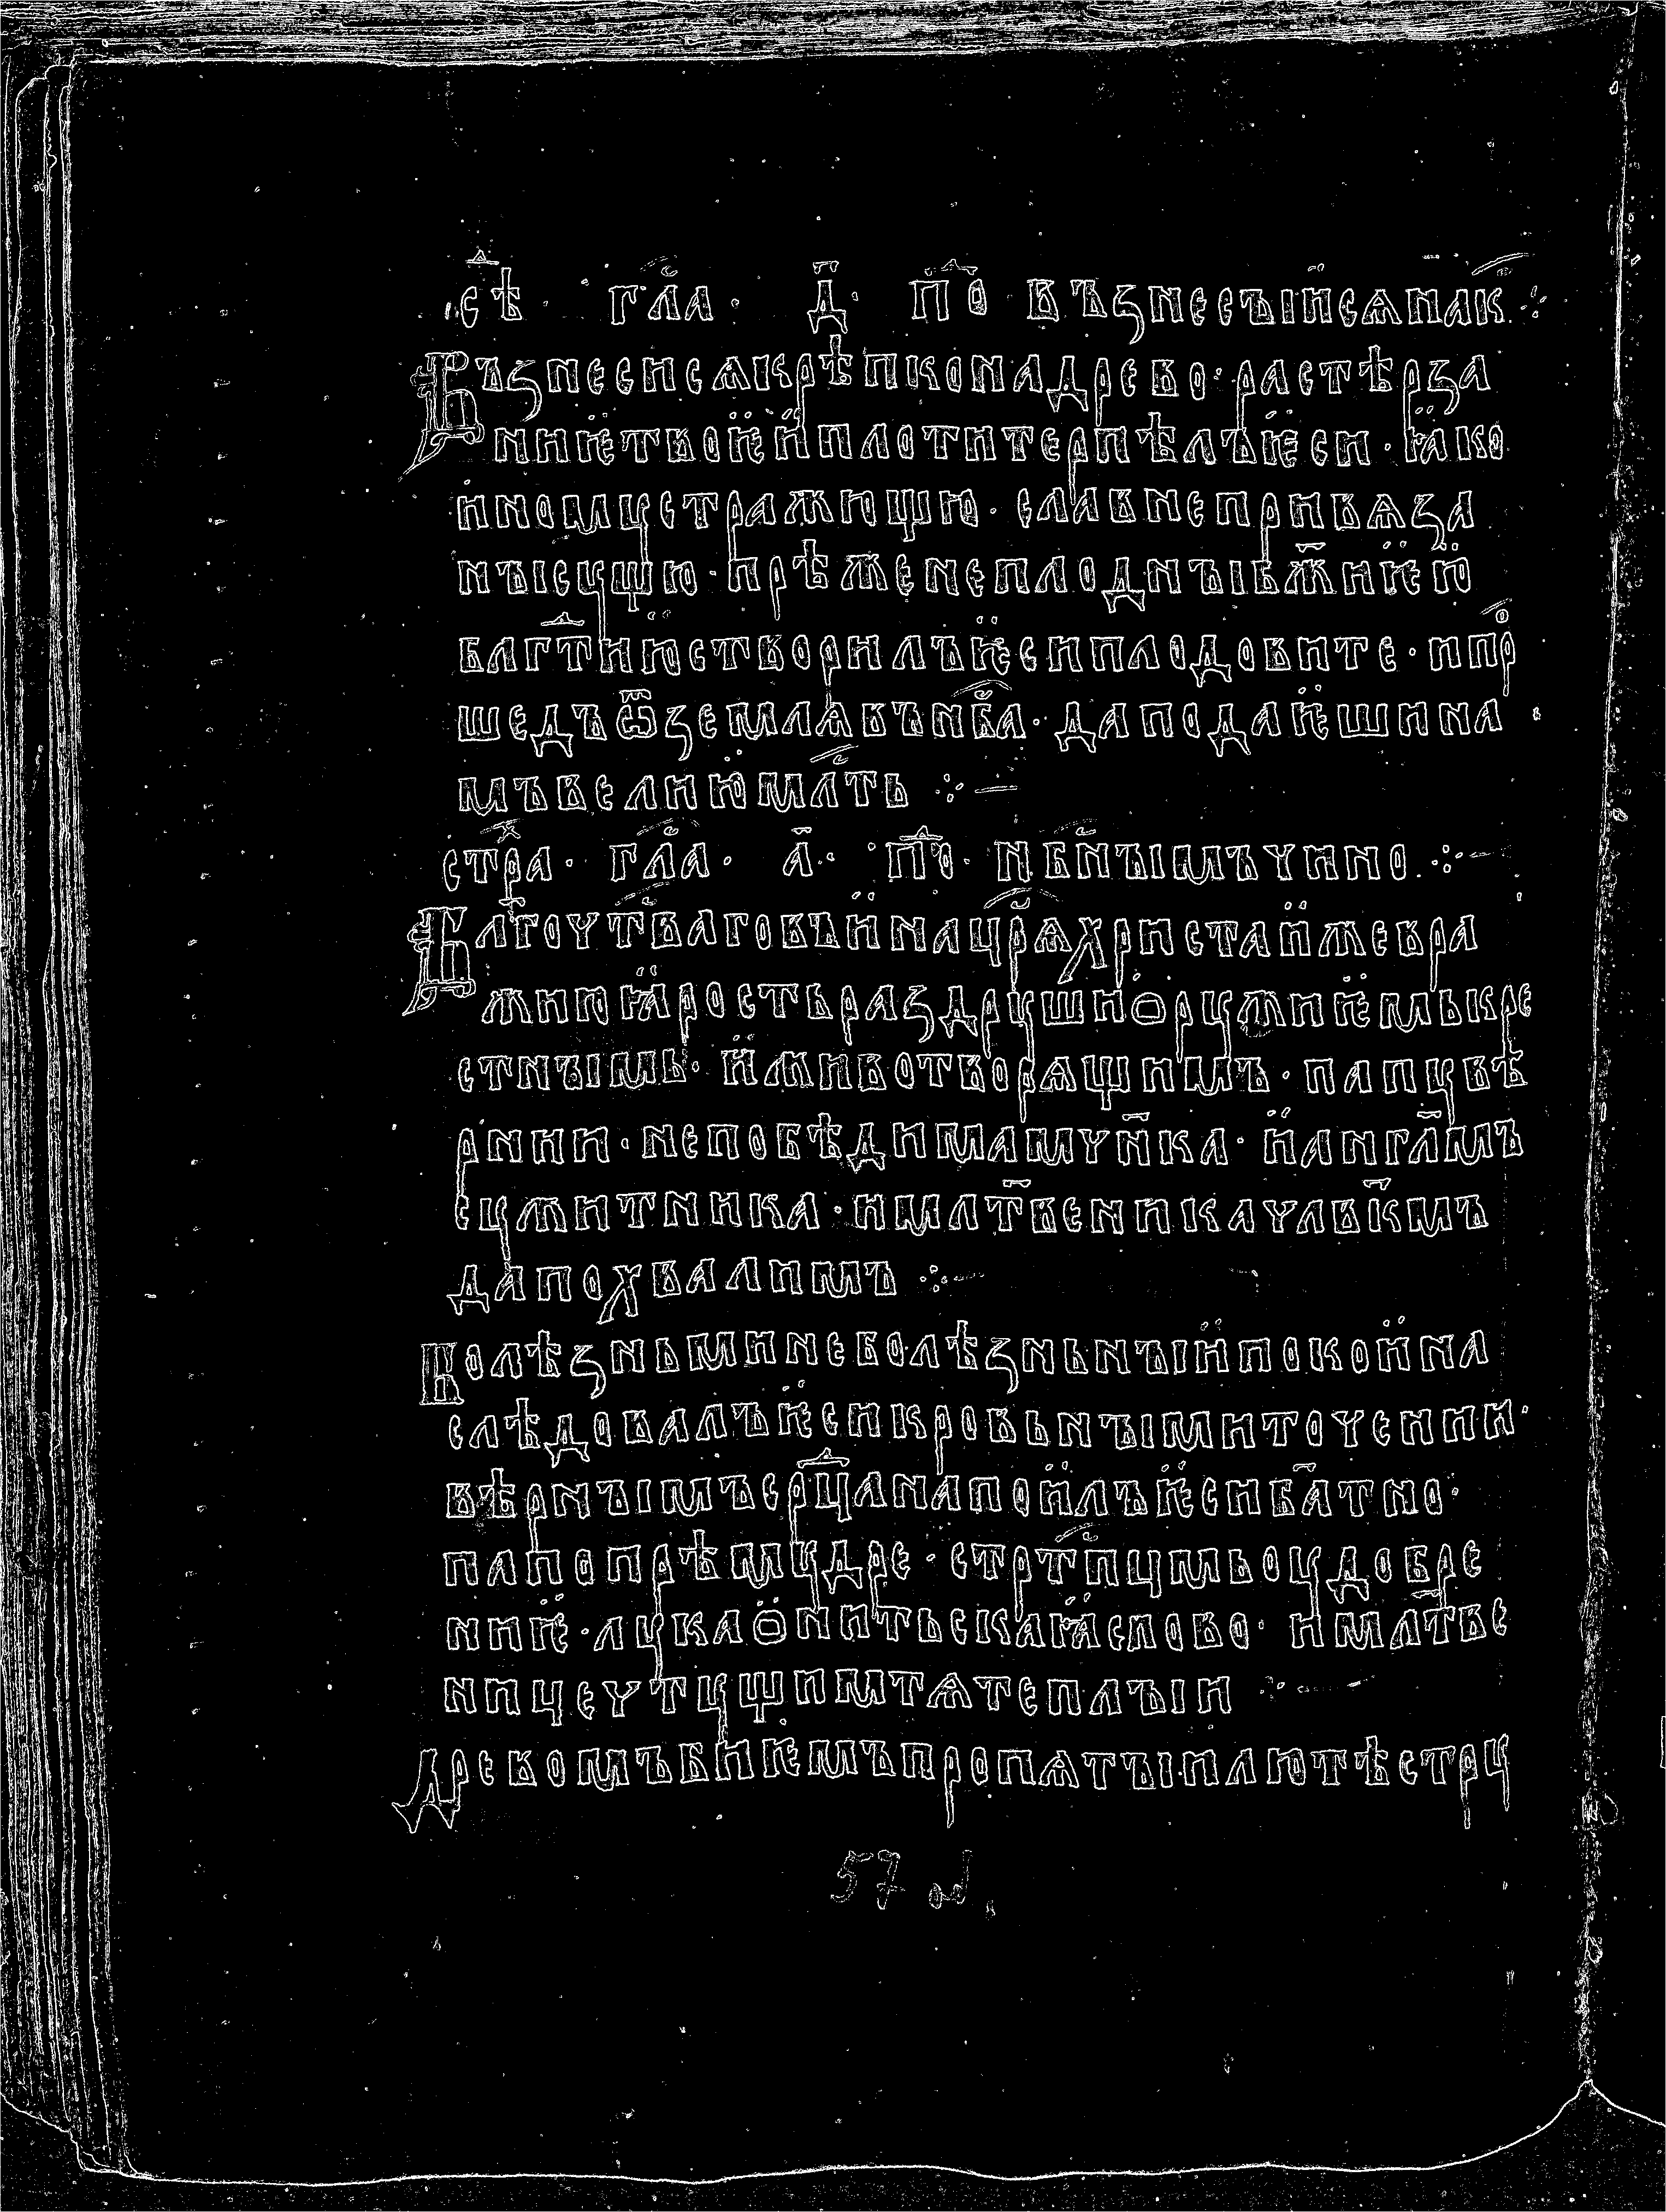 сѣⷣ · гл҇а · д҃ · поⷣ · възнесъıисѧнак ⁘
Възнесисѧкрѣпконадрево · растѣрза
ниѥтвоѥӥплотитерпѣлъѥси · ꙗко
иномꙋстражющю · славнепривѧза
нъıсꙋщю · прѣженеплоднъıбж҃иѥю
благⷣтиюствoрилъѥсиплодовите · ипрⷪ
шедъѿземлѧвън҃бса · даподаѥшина
мъвелиюмлⷭть ⁘ —
стрⷯа · гл҇а · а҃ · поⷣ · н҃бнъıмъчино ⁘ —
Блгоуⷭт҃благовѣӥнацрⷭѧхристаӥжебра
жиюꙗростьраздрꙋшиорꙋжиѥмькре
стнъıмь · ӥживотворѧщимъ · папꙋвѣ
рнии · непобѣдимамч҃нка · ӥанг҃лмъ
сꙋжитника · имлт҃веникачлв҃кмъ
дапохвалимъ ⁘ —
Болѣзньминеболѣзньнъıӥпокоӥна
слѣдовалъѥсикровьнъıмиточении ·
вѣрнъıмъсрⷣцанапоӥлъѥсиб҃атно ·
папопрѣмꙋдре · стрⷭтпцмьоудобре
ниѥ · лꙋкаӧнитьскаꙗслово · имл҃тве
ницечтꙋщимтѧтеплъıи ⁘ —
Древомъбиѥмъпропѧтъıилютѣстрꙋ
57 od.